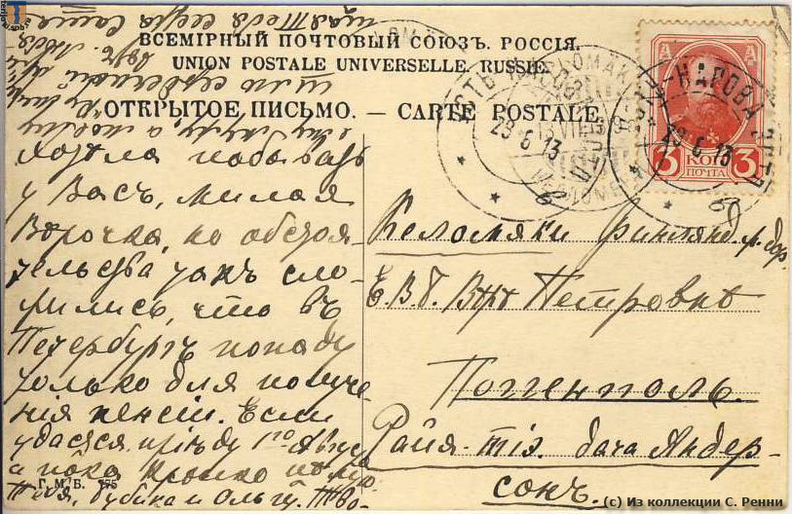 ВСЕМІРНЫЙ ПОЧТОВЫЙ СОЮЗЪ. РОССІЯ.
UNION POSTALE UNIVERSELLE. RUSSIE.
ОТКРЫТОЕ ПИСЬМО. — CARTE POSTALE.
УСТЬ-НАРОВА
28 6 13
УСТЬ-НАРОВА
28 6 13
3 КОП 3
ПОЧТА
Хотѣла побывать
у Васъ, милая
Вѣрочка, но обстоя-
тельства такъ сло-
жились, что въ
Петербургъ попаду
только для получе-
нія пенсіи. Если
удастся пріѣду 1го Августа
а пока крѣпко цѣлую
Тебя, Бубика и Ольгу. Тво-
Келомяки Финлянд. ж. дор.
Е. В. Б. Вѣрѣ Петровнѣ
Поггенполь.
Райя-тіэ. дача Андер-
сонъ.
Г. М. Б. 775
(с) Из коллекции С. Ренни